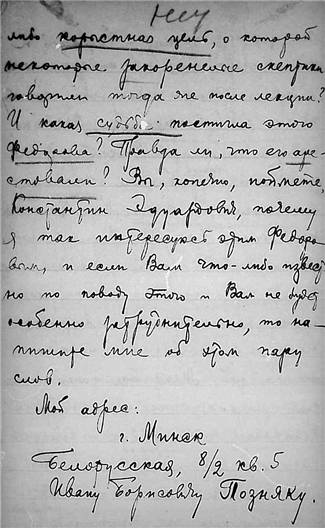 нет
либо корыстная цель, о которой
некоторые закоренелые скептики
говорили тогда же после лекции?
И какая судьба постигла этого
Федорова? Правда ли, что его аре-
стовали? Вы, конечно, поймете,
Константин Эдуардович, почему
я так интересуюсь этим Федоро-
вым, и если Вам что-либо извест
но по поводу этого и Вам не будет
особенно затруднительно, то на-
пишите мне об этом пару
слов.
Мой адрес:
г. Минск
Белорусская, 8/2 кв. 5
Ивану Борисовичу Позняку.